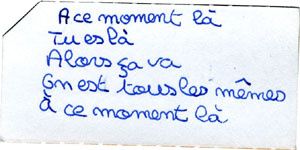 A ce moment là
Tu es là
Alors ça va
On est tous les mêmes
À ce moment là